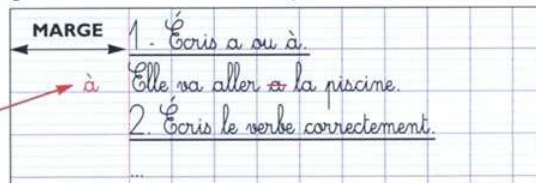 MARGE
1. Écris a ou à.
à Elle va aller a la piscine.
2. Écris le verbe correctement.
...